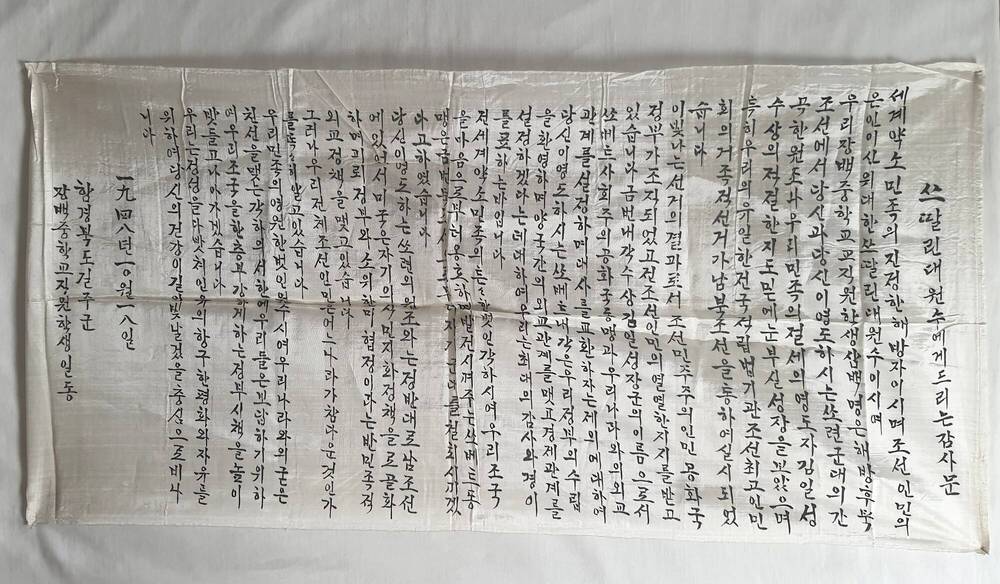 쓰딸린대원수에게드리는감사문
세계약소민족의진정한해방자이시며조선인민의
은인이신위대한쓰딸린대원수이시여
우리장백중학교교직원학생삼백명은해방후북
조선에서당신과당신이영도하시는쏘련군대의간
곡한원조와우리민족의절세의영도자김일성
수상의적절한지도밑에눈부신성장을보았으며
특히우리의유일한전국적립법기관조선최고인민
회의거족적선거가남북조선을통하여실시되었
습니다
이빛나는선거의결과로서조선민주주의인민공화국
정부가조직되었고전조선인민의열렬한지지를받고
있습니다금번내각수상김일성장군의이름으로서
쏘베트사회주의공화국동맹과우리나라와의외교
관계를설정하며대사를교환하자는제의에대하여
당신이영도하시는쏘베트내각은우리정부의수립
을화영하며양국간의외교관계를맺고경제관계를
설정하겠다는데대하여우리는최대의감사와경이
를표하는바입니다
전세계약소민족의튼튼한벗인각하시여우리조국
을마음으로부터옹호하며발전시켜주는쏘베트동
맹은금번또다시 군대를철회시키겠
다고하였습니다
당신이영도하는쏘련의원조와는정반대로남조선
에있어서미국은자기의식민지화정책을로골화
하며괴뢰정부와소위한미협정이라는반민족적
외교정책을맺고있습니다
그러나우리전체조선인민은어느나라가참다운것인가
를똑똑히알고있습니다
우리민족의영원한벗인원수시여우리나라와의굳은
친선을맺는각하의서한에우리들은보답하기위하
여우리조국을한층부강하게하는정부시책을높이
받들고나아가겠습니다
우리는정성을다받쳐인류의항구한평화와자유를
위하여당신의건강이길이빛날것을충심으로비나
니다
一九四八년一0월一八일
함경북도길주군
장백중학교직원학생일동